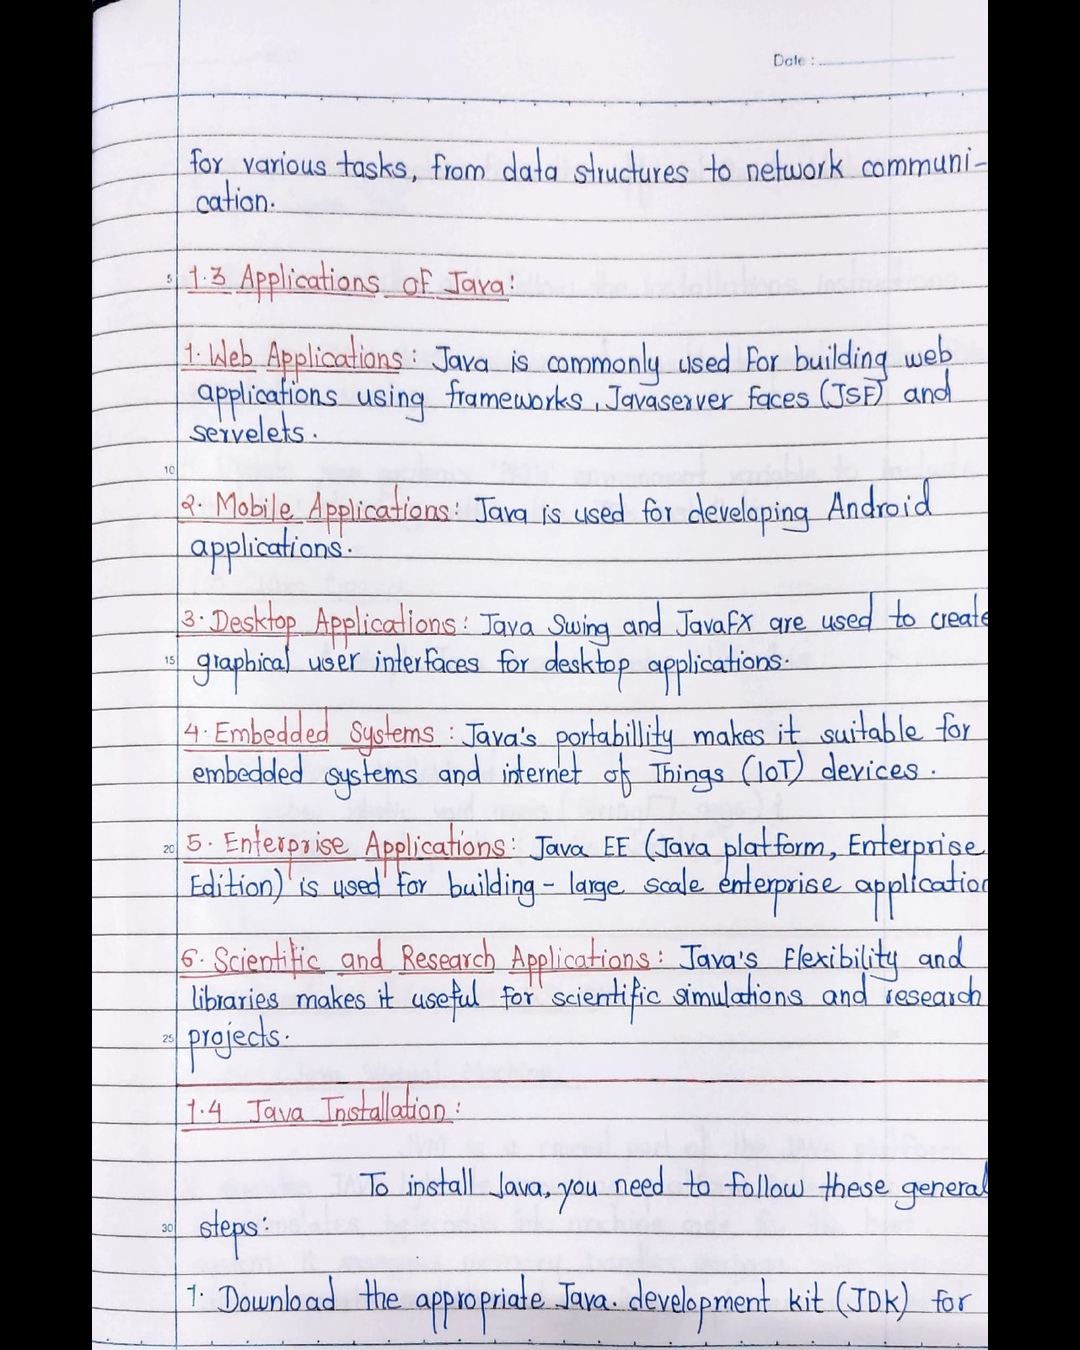 Date :
for various tasks, from data structures to network communi-
cation.
5
1.3 Applications of Java:
1. Web Applications : Java is commonly used for building web
applications using frameworks, Javaserver faces (JSF) and
servelets.
10
2. Mobile Applications: Java is used for developing Android
applications.
3. Desktop Applications: Java Swing and JavaFX are used to create
15 graphical user interfaces for desktop applications.
4. Embedded Systems : Java's portabillity makes it suitable for
embedded systems and internet of Things (IoT) devices.
20 5. Enterprise Applications: Java EE (Java platform, Enterprise
Edition) is used for building - large scale enterprise application
6. Scientific and Research Applications: Java's Flexibility and
libraries makes it useful for scientific simulations and research
25 projects.
1.4 Java Installation:
To install Java, you need to follow these general
30 steps:
1. Download the appropriate Java. development kit (JDK) for